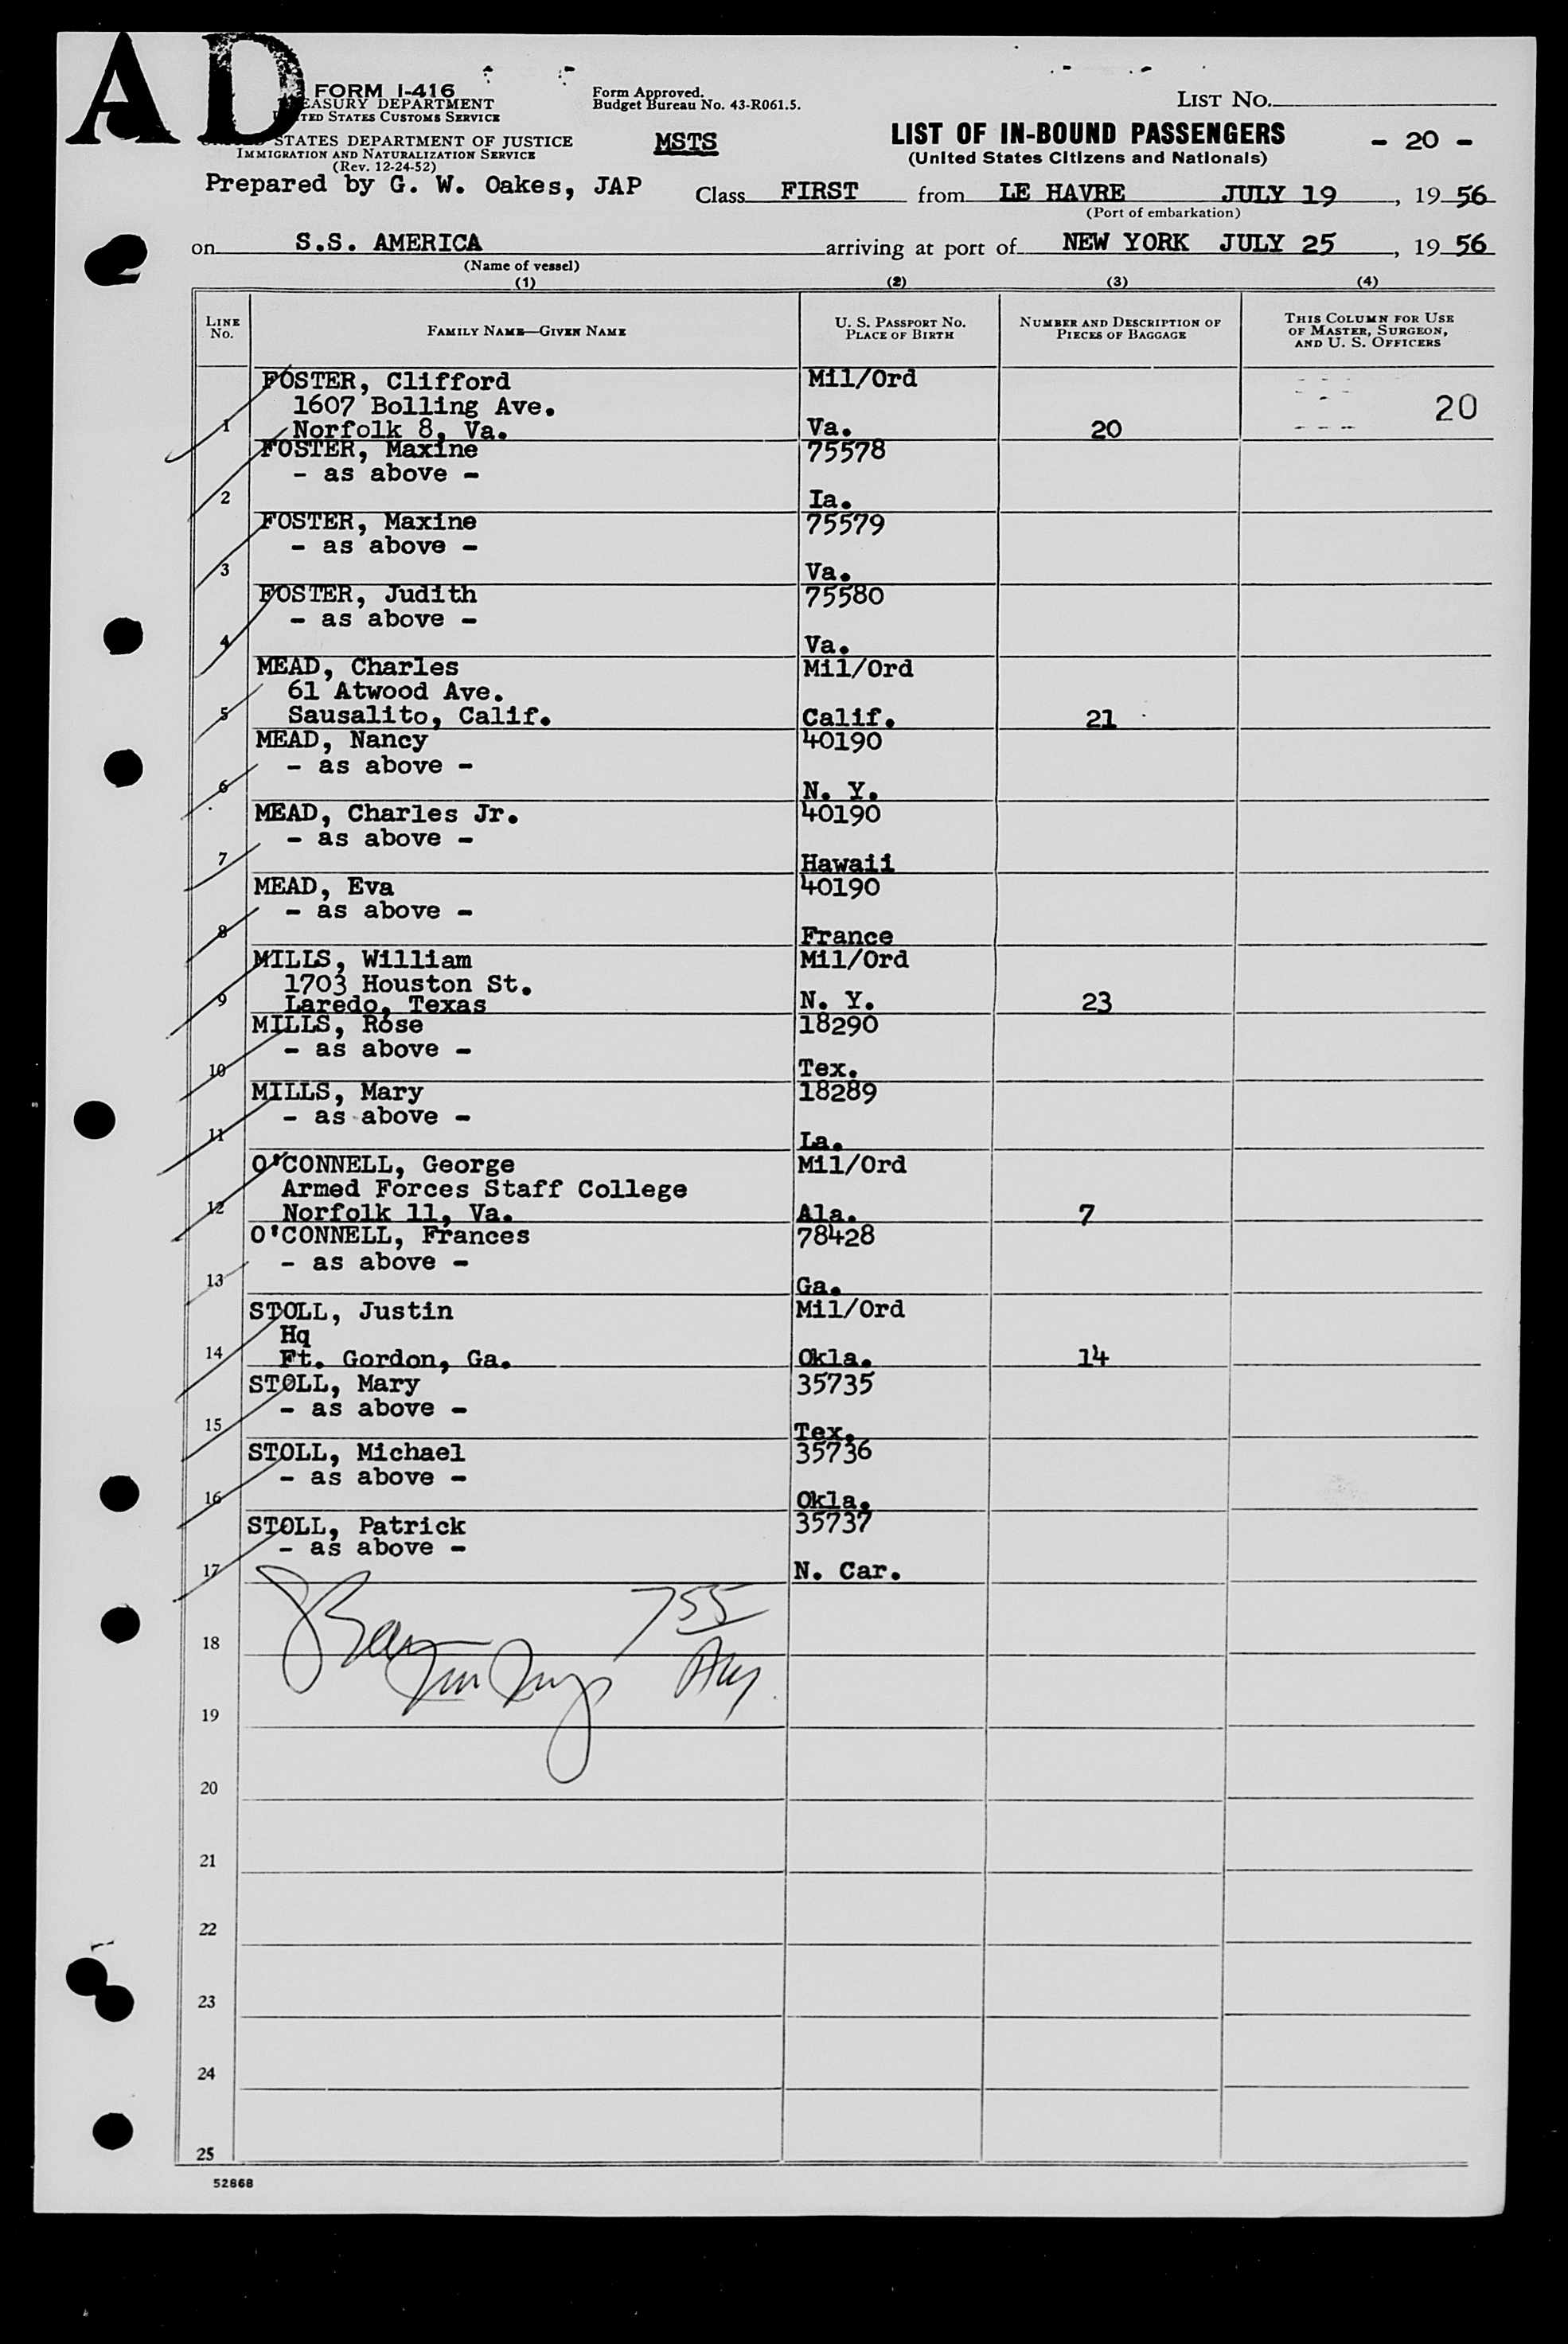 AD
FORM I-416
TREASURY DEPARTMENT
UNITED STATES CUSTOMS SERVICE
UNITED STATES DEPARTMENT OF JUSTICE
IMMIGRATION AND NATURALIZATION SERVICE
(Rev. 12-24-52)
Form Approved.
Budget Bureau No. 43-R061.5.
MSTS
LIST NO.
LIST OF IN-BOUND PASSENGERS
(United States Citizens and Nationals)
- 20 -
Prepared by G. W. Oakes, JAP
Class FIRST from LE HAVRE JULY 19, 1956
(Port of embarkation)
2
on S.S. AMERICA arriving at port of NEW YORK JULY 25, 1956
(Name of vessel)
(1) (2) (3) (4)
LINE NO.
FAMILY NAME—GIVEN NAME
U. S. PASSPORT NO.
PLACE OF BIRTH
NUMBER AND DESCRIPTION OF
PIECES OF BAGGAGE
THIS COLUMN FOR USE
OF MASTER, SURGEON,
AND U. S. OFFICERS
FOSTER, Clifford Mil/Ord
1607 Bolling Ave. 20
1 Norfolk 8, Va. Va. 20
FOSTER, Maxine 75578
- as above -
2 Ia.
FOSTER, Maxine 75579
- as above -
3 Va.
FOSTER, Judith 75580
- as above -
4 Va.
MEAD, Charles Mil/Ord
61 Atwood Ave.
5 Sausalito, Calif. Calif. 21
MEAD, Nancy 40190
- as above -
6 N. Y.
MEAD, Charles Jr. 40190
- as above -
7 Hawaii
MEAD, Eva 40190
- as above -
8 France
MILLS, William Mil/Ord
1703 Houston St.
9 Laredo, Texas N. Y. 23
MILLS, Rose 18290
- as above -
10 Tex.
MILLS, Mary 18289
- as above -
11 La.
O'CONNELL, George Mil/Ord
Armed Forces Staff College
12 Norfolk 11, Va. Ala. 7
O'CONNELL, Frances 78428
- as above -
13 Ga.
STOLL, Justin Mil/Ord
Hq
14 Ft. Gordon, Ga. Okla. 14
STOLL, Mary 35735
- as above -
15 Tex.
STOLL, Michael 35736
- as above -
16 Okla.
STOLL, Patrick 35737
- as above -
17 N. Car.
755
18
19
20
21
22
23
24
25
52868